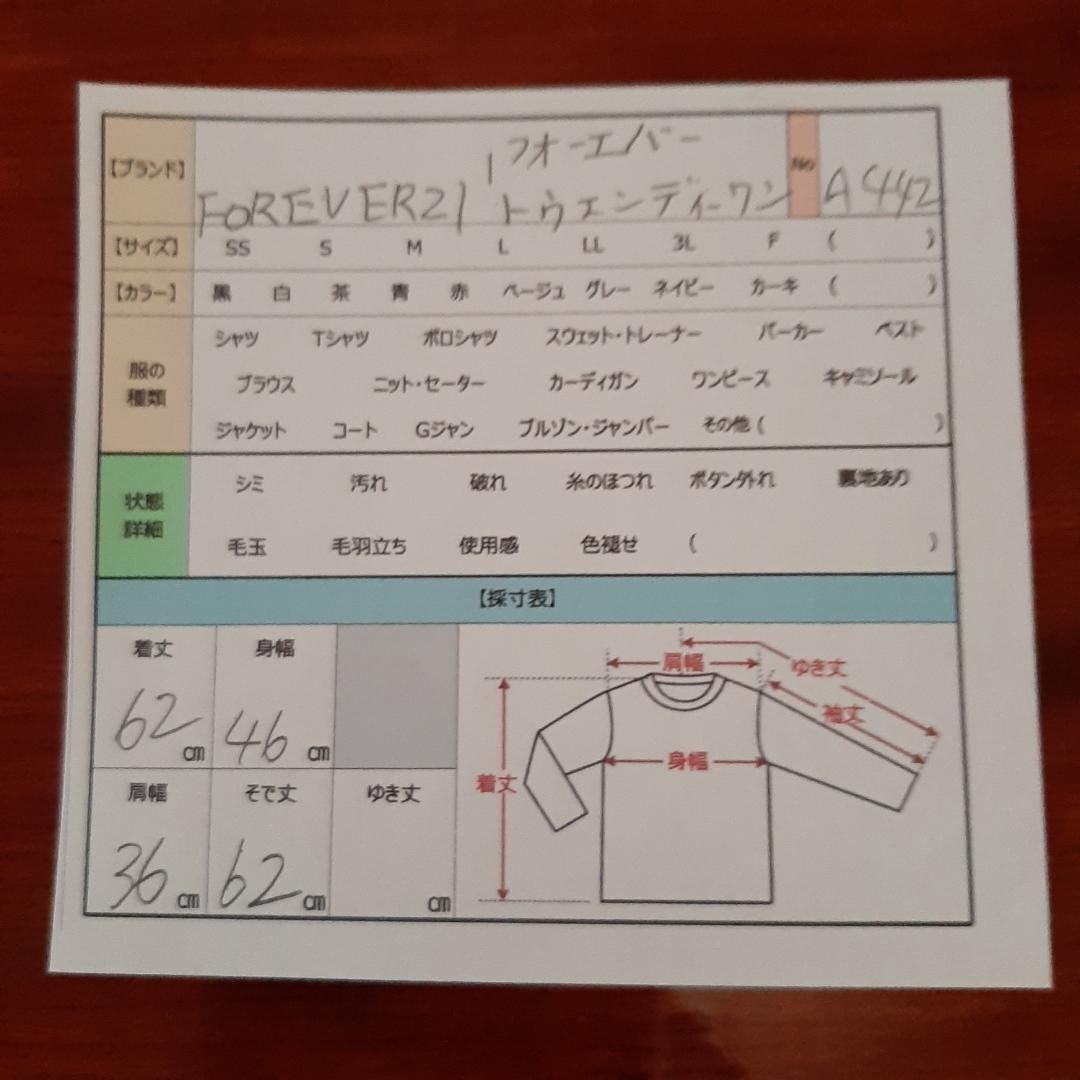 フォーエバー
【ブランド】 FOREVER21 トウェンディーワン No A442
【サイズ】 SS S M L LL 3L F ( )
【カラー】 黒 白 茶 青 赤 ベージュ グレー ネイビー カーキ ( )
シャツ Tシャツ ポロシャツ スウェット・トレーナー パーカー ベスト
服の
種類
ブラウス ニット・セーター カーディガン ワンピース キャミソール
ジャケット コート Gジャン ブルゾン・ジャンパー その他 ( )
シミ 汚れ 破れ 糸のほつれ ボタン外れ 裏地あり
状態
詳細
毛玉 毛羽立ち 使用感 色褪せ ( )
【採寸表】
着丈 身幅
62 cm 46 cm
肩幅 そで丈 ゆき丈
36 cm 62 cm cm
肩幅 ゆき丈
袖丈
身幅
着丈